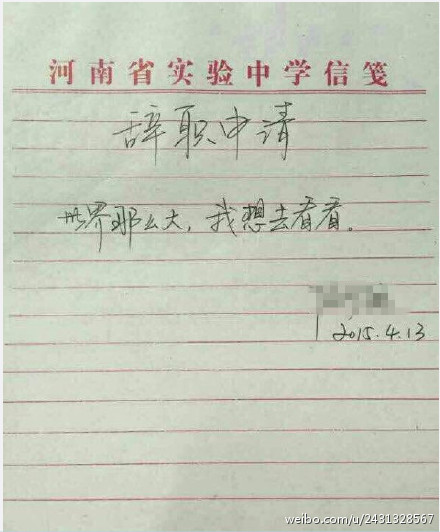 河南省实验中学信笺
辞职申请
世界那么大，我想去看看。
2015.4.13
weibo.com/u/2431328567